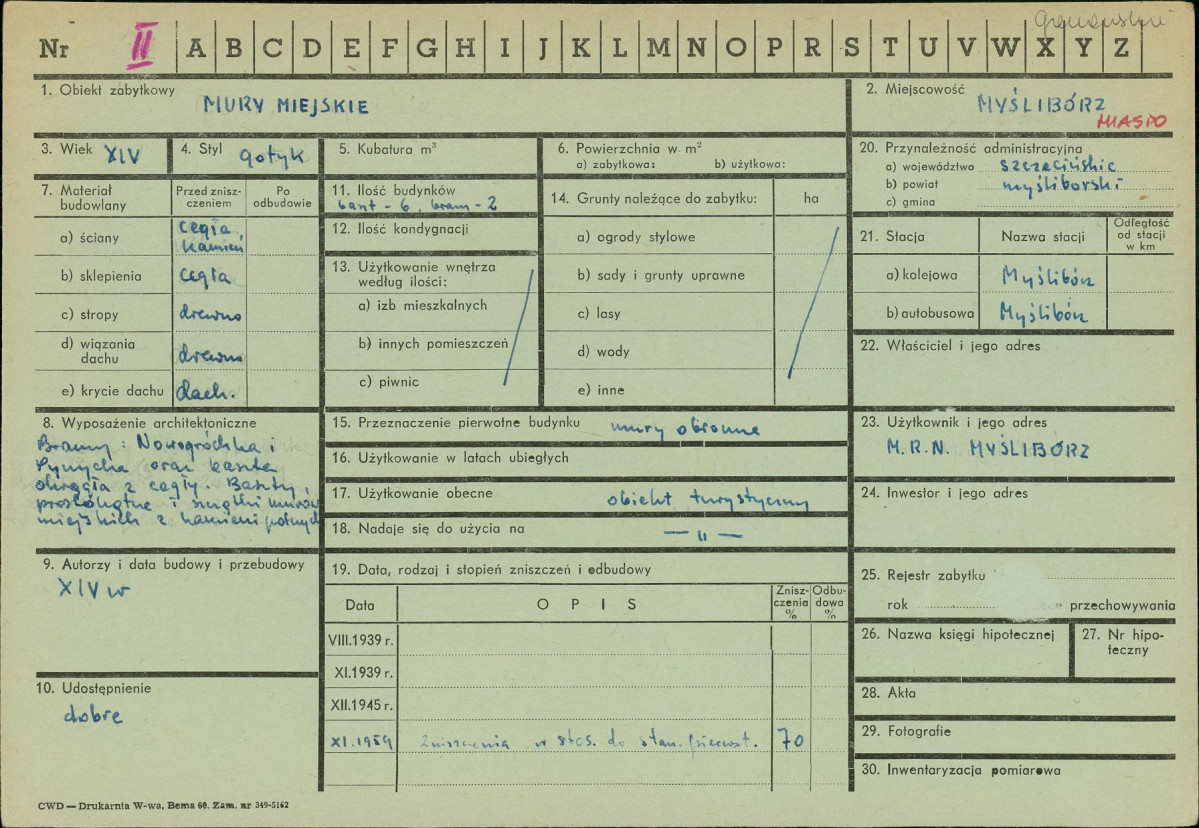 Nr II A B C D E F G H I J K L M N O P R S T U V W X Y Z
1. Obiekt zabytkowy MURY MIEJSKIE
2. Miejscowość MYŚLIBÓRZ
MIASTO
3. Wiek XIV
4. Styl gotyk
5. Kubatura m³
6. Powierzchnia w m²
a) zabytkowa: b) użytkowa:
20. Przynależność administracyjna
a) województwo szczecińskie
b) powiat myśliborski
c) gmina
7. Materiał budowlany
Przed znisz-
czeniem
Po
odbudowie
a) ściany cegła,
kamień
b) sklepienia cegła
c) stropy drewno
d) wiązania
dachu drewno
e) krycie dachu dach.
11. Ilość budynków
baszt - 6, bram - 2
12. Ilość kondygnacji
13. Użytkowanie wnętrza
według ilości:
a) izb mieszkalnych
b) innych pomieszczeń
c) piwnic
14. Grunty należące do zabytku: ha
a) ogrody stylowe
b) sady i grunty uprawne
c) lasy
d) wody
e) inne
21. Stacja Nazwa stacji Odległość
od stacji
w km
a) kolejowa Myślibórz
b) autobusowa Myślibórz
22. Właściciel i jego adres
8. Wyposażenie architektoniczne
Bramy: Nowogródzka i
Pyrzycka oraz baszta
okrągła z cegły. Baszty
prostokątne i murów
miejskich z kamieni polnych
15. Przeznaczenie pierwotne budynku mury obronne
16. Użytkowanie w latach ubiegłych
17. Użytkowanie obecne obiekt turystyczny
18. Nadaje się do użycia na — " —
23. Użytkownik i jego adres
M.R.N. MYŚLIBÓRZ
24. Inwestor i jego adres
9. Autorzy i data budowy i przebudowy
XIV w
10. Udostępnienie
dobre
19. Data, rodzaj i stopień zniszczeń i odbudowy
Data OPIS Znisz-
czenia
% Odbu-
dowa
%
VIII.1939 r.
XI.1939 r.
XII.1945 r.
XI.1959 Zniszczenia w stos. do stan. pierwot. 70
25. Rejestr zabytku
rok przechowywania
26. Nazwa księgi hipotecznej
27. Nr hipo-
teczny
28. Akta
29. Fotografie
30. Inwentaryzacja pomiarowa
CWD — Drukarnia W-wa, Bema 60. Zam. nr 349-5162